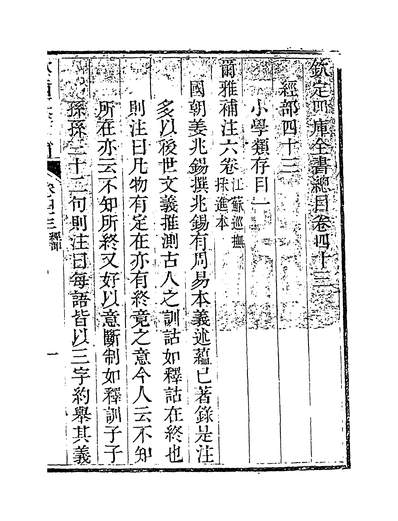 欽定四庫全書總目卷四十三
經部四十三
小學類存目一
爾雅補注六卷江蘇巡撫採進本
國朝姜兆錫撰兆錫有周易本義述蘊已著錄是注
多以後世文義推測古人之訓詁如釋詁在終也
則注曰凡物有定在亦有終竟之意今人云不知
所在亦云不知所終又好以意斷制如釋訓子子
孫孫三十二句則注曰每語皆以三字約舉其義
卷四十三 經部 一